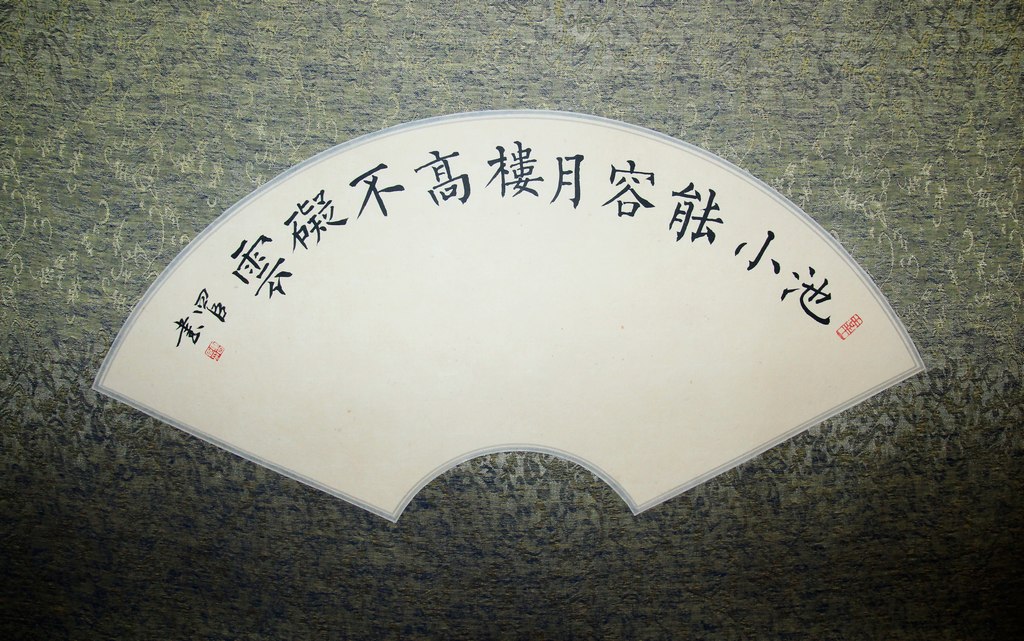 池小能容月樓高不礙雲
書